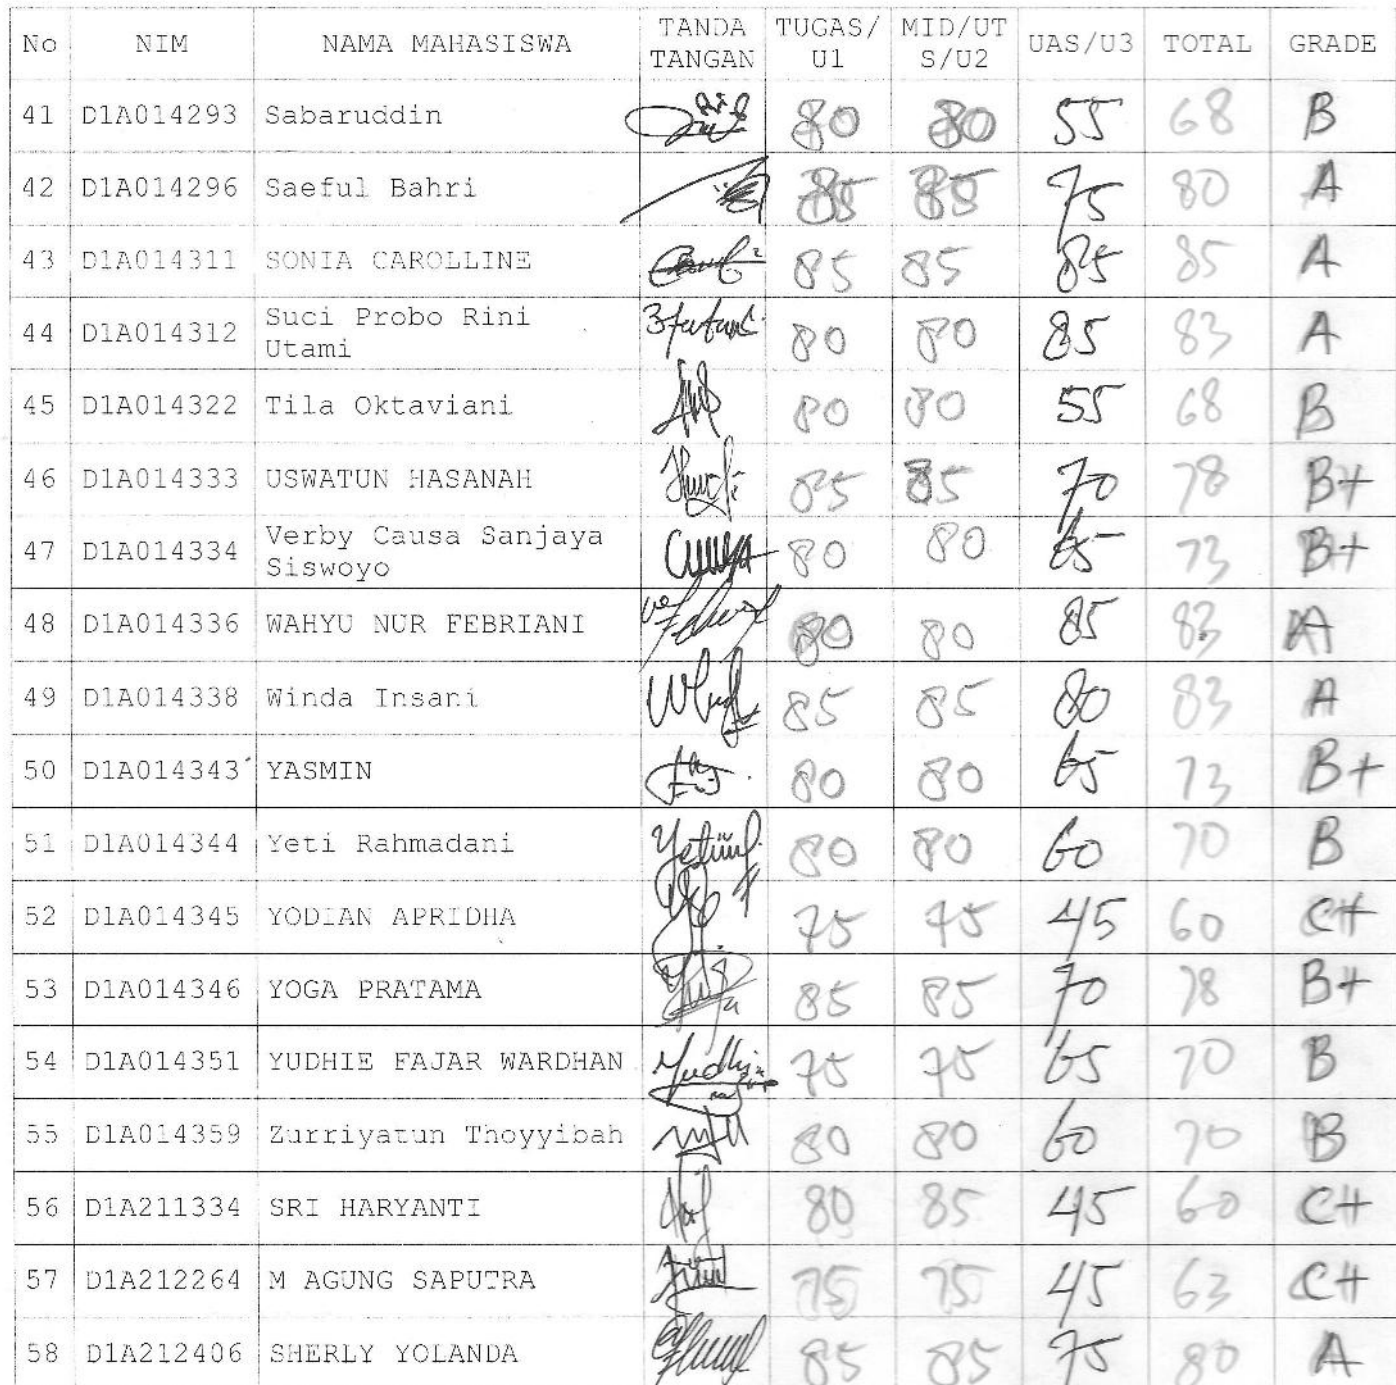 No NIM NAMA MAHASISWA TANDA TANGAN TUGAS/U1 MID/UTS/U2 UAS/U3 TOTAL GRADE
41 D1A014293 Sabaruddin 80 80 55 68 B
42 D1A014296 Saeful Bahri 85 85 75 80 A
43 D1A014311 SONIA CAROLLINE 85 85 85 85 A
44 D1A014312 Suci Probo Rini Utami 80 80 85 83 A
45 D1A014322 Tila Oktaviani 80 80 55 68 B
46 D1A014333 USWATUN HASANAH 85 85 70 78 B+
47 D1A014334 Verby Causa Sanjaya Siswoyo 80 80 65 73 B+
48 D1A014336 WAHYU NUR FEBRIANI 80 80 85 83 A
49 D1A014338 Winda Insani 85 85 80 83 A
50 D1A014343 YASMIN 80 80 65 73 B+
51 D1A014344 Yeti Rahmadani 80 80 60 70 B
52 D1A014345 YODIAN APRIDHA 75 75 45 60 C+
53 D1A014346 YOGA PRATAMA 85 85 70 78 B+
54 D1A014351 YUDHIE FAJAR WARDHAN Yudhi 75 75 65 70 B
55 D1A014359 Zurriyatun Thoyyibah 80 80 60 70 B
56 D1A211334 SRI HARYANTI 80 85 45 60 C+
57 D1A212264 M AGUNG SAPUTRA 75 75 45 63 C+
58 D1A212406 SHERLY YOLANDA 85 85 75 80 A